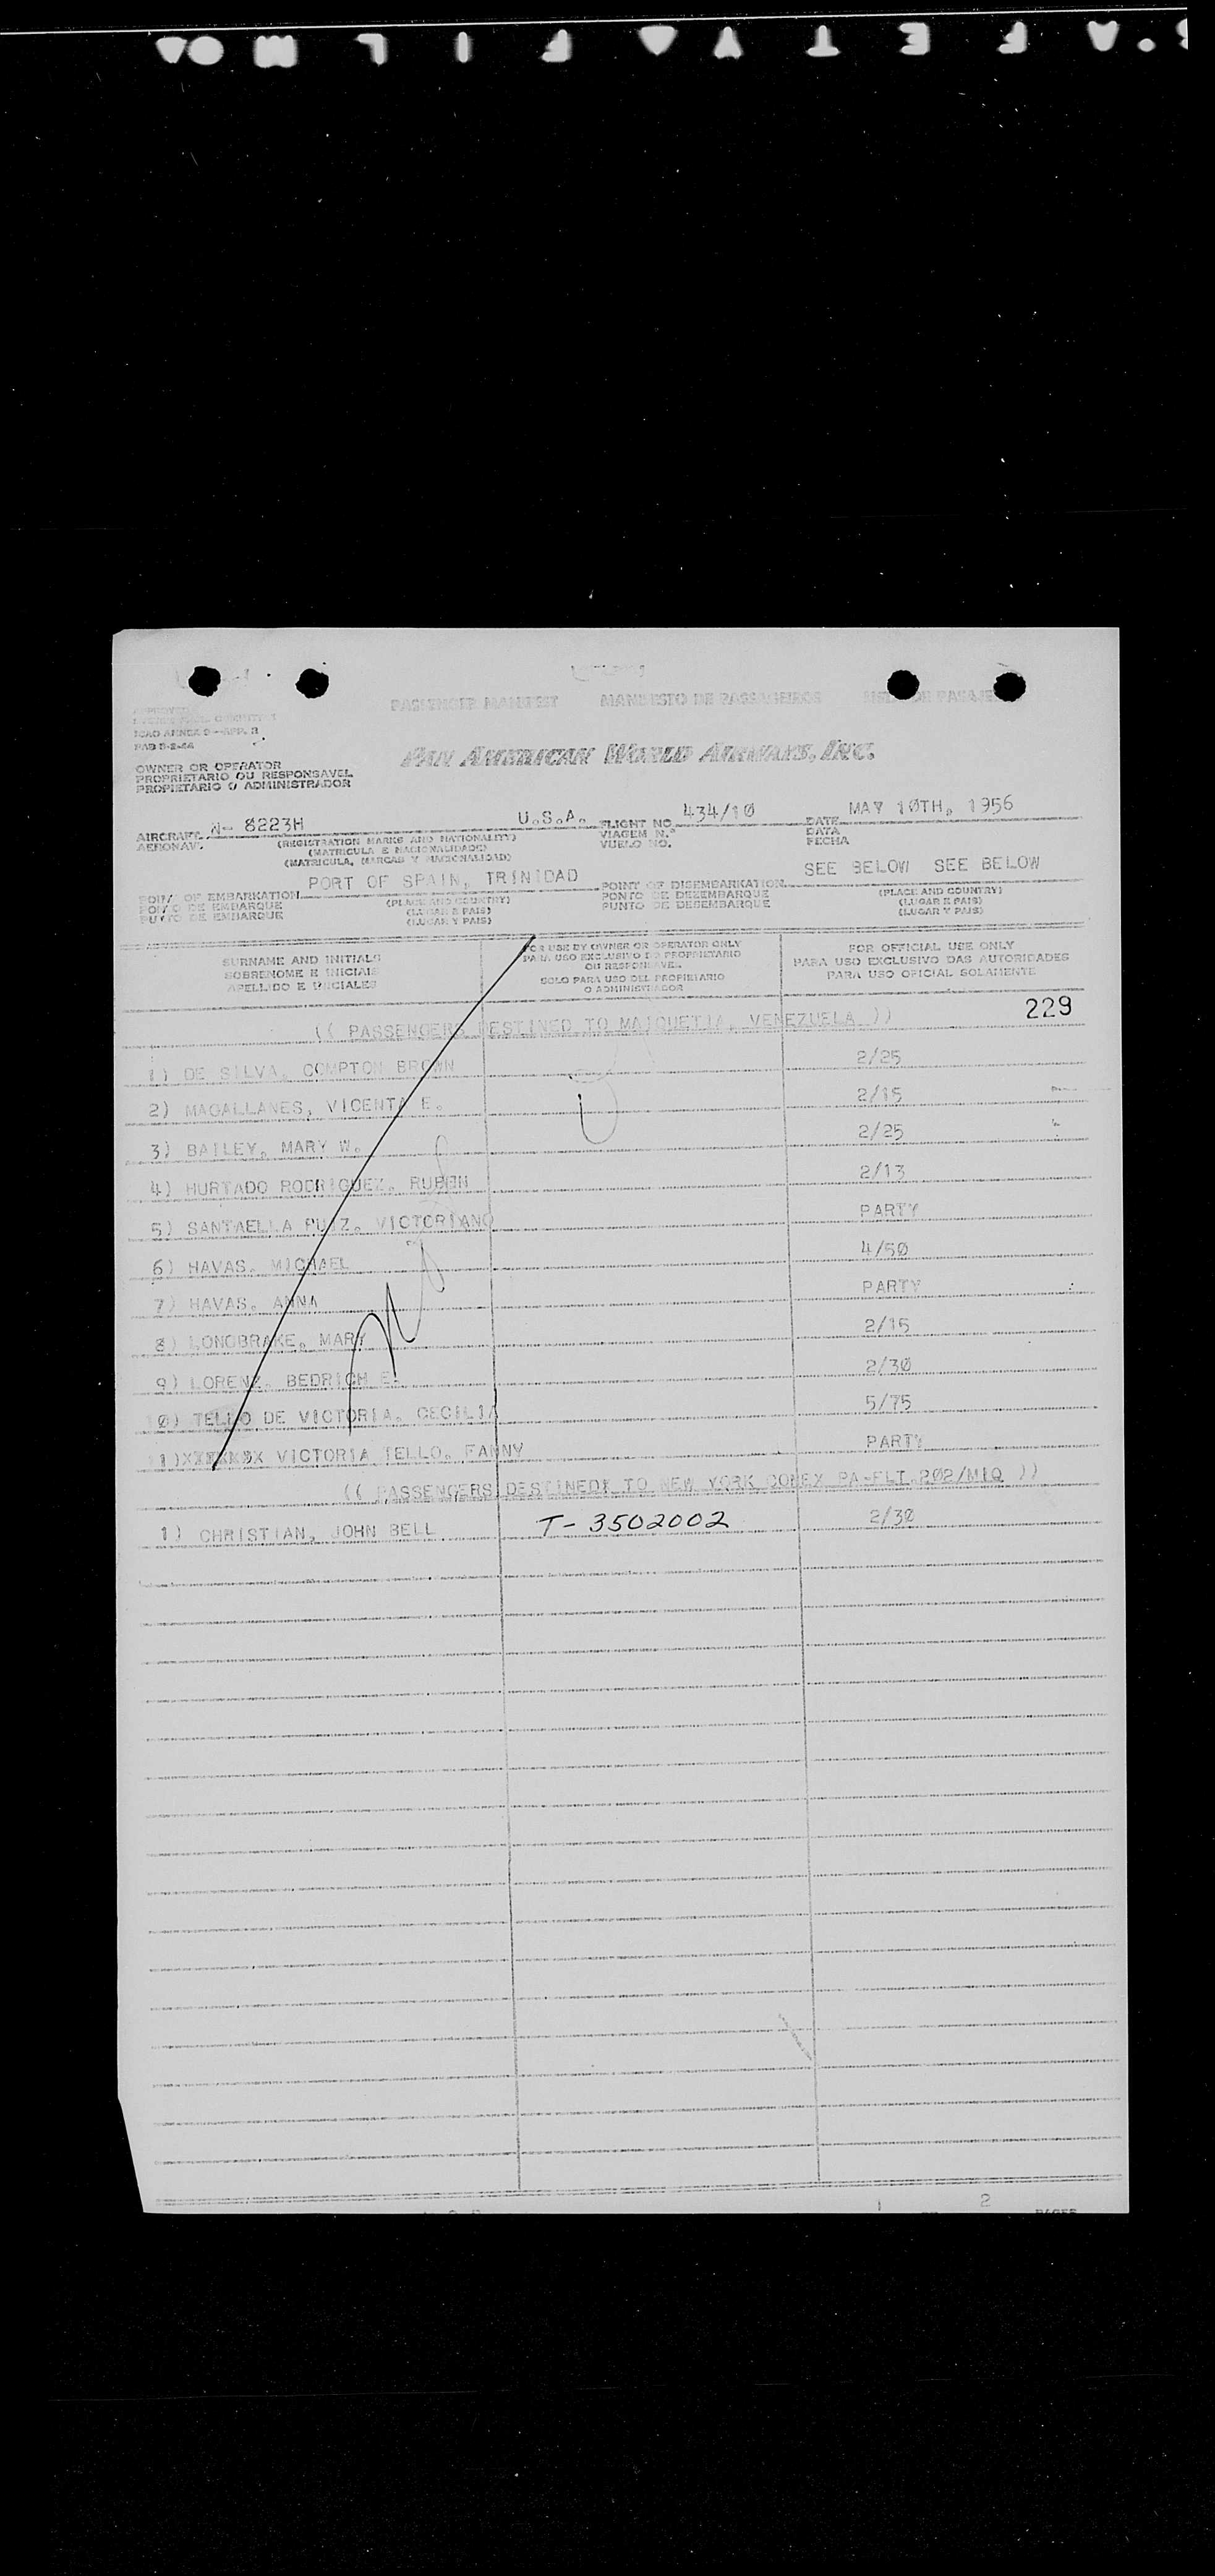 SAFETY FILM
PASSENGER MANIFEST MANIFESTO DE PASSAGEIROS
ICAO ANNEX 9—APP. 
OWNER OR OPERATOR
PROPRIETARIO OU RESPONSAVEL
PROPIETARIO O ADMINISTRADOR
PAN AMERICAN WORLD AIRWAYS, INC.
AIRCRAFT N- 8223H U.S.A. FLIGHT NO. 434/10 DATE MAY 10TH, 1956
AERONAVE (REGISTRATION MARKS AND NATIONALITY) VIAGEM N.º DATA
(MATRICULA E NACIONALIDADE) VUELO NO. FECHA
(MATRICULA, MARCAS Y NACIONALIDAD)
POINT OF EMBARKATION PORT OF SPAIN, TRINIDAD POINT OF DISEMBARKATION SEE BELOW SEE BELOW
PONTO DE EMBARQUE (PLACE AND COUNTRY) PONTO DE DEZEMBARQUE (PLACE AND COUNTRY)
PUNTO DE EMBARQUE (LUGAR E PAIS) PUNTO DE DESEMBARQUE (LUGAR E PAIS)
(LUGAR Y PAIS) (LUGAR Y PAIS)
SURNAME AND INITIALS FOR USE BY OWNER OR OPERATOR ONLY FOR OFFICIAL USE ONLY
SOBRENOME E INICIAIS PARA USO EXCLUSIVO DO PROPRIETARIO OU RESPONSAVEL PARA USO EXCLUSIVO DAS AUTORIDADES
APELLIDO E INICIALES SOLO PARA USO DEL PROPIETARIO O ADMINISTRADOR PARA USO OFICIAL SOLAMENTE
229
(( PASSENGERS DESTINED TO MAIQUETIA, VENEZUELA ))
1) DE SILVA, COMPTON BROWN 2/25
2) MAGALLANES, VICENTA E. 2/15
3) BAILEY, MARY W. 2/25
4) HURTADO RODRIGUEZ, RUBEN 2/13
5) SANTAELLA RUIZ, VICTORIANO PARTY
6) HAVAS, MICHAEL 4/50
7) HAVAS, ANNA PARTY
8) LONGBRAKE, MARY 2/15
9) LORENZ, BEDRICH E. 2/30
0) TELLO DE VICTORIA, CECILIA 5/75
1) VICTORIA TELLO, FANNY PARTY
(( PASSENGERS DESTINED TO NEW YORK CONEX PA-FLT 202/MIQ ))
1) CHRISTIAN, JOHN BELL T-3502002 2/30
1 2 PAGES